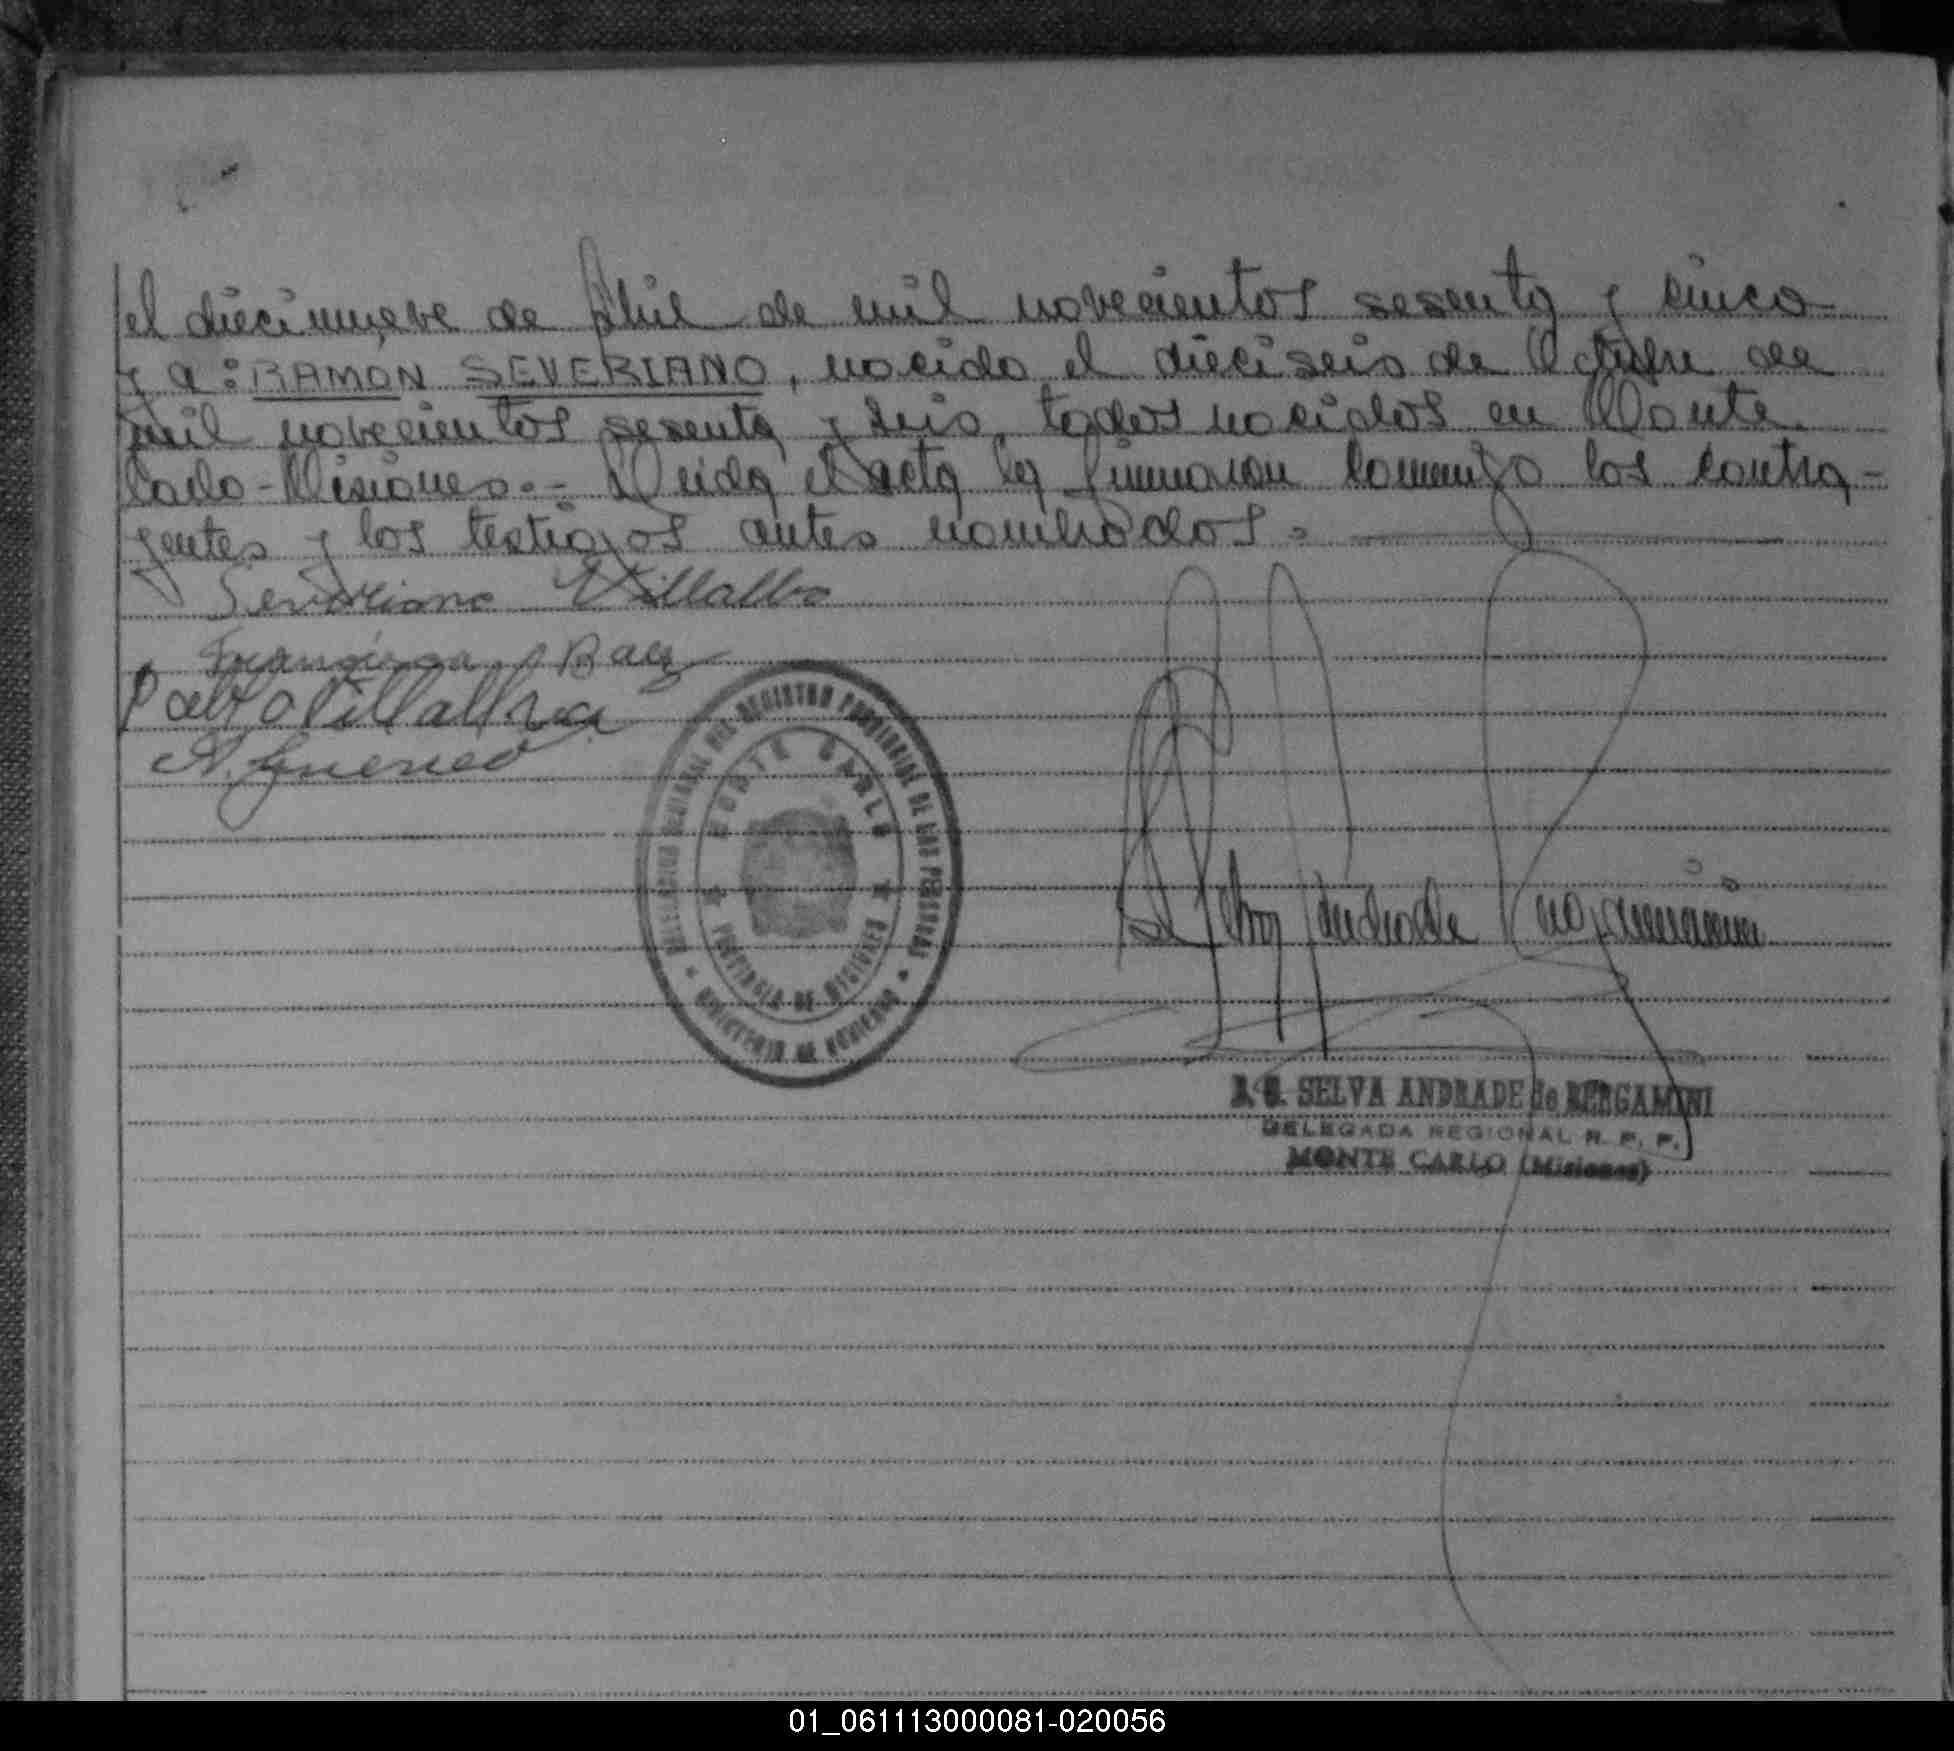 el diecinueve de Abril de mil novecientos sesenta y cinco
y a: RAMÓN SEVERIANO, nacido el dieciseis de Octubre de
mil novecientos sesenta y seis, todos nacidos en Monte
Carlo-Misiones.- Leida el acta la firmaron conmigo los contra-
yentes y los testigos antes nombrados.
Severiano Villalba
Francisca Baez
Pablo Villalba
REGISTRO PROVINCIAL DE LAS PERSONAS
MONTE CARLO
PROVINCIA DE MISIONES
MINISTERIO DE GOBIERNO
SELVA ANDRADE de BERGAMINI
DELEGADA REGIONAL R. P. P.
MONTE CARLO (Misiones)
01_061113000081-020056